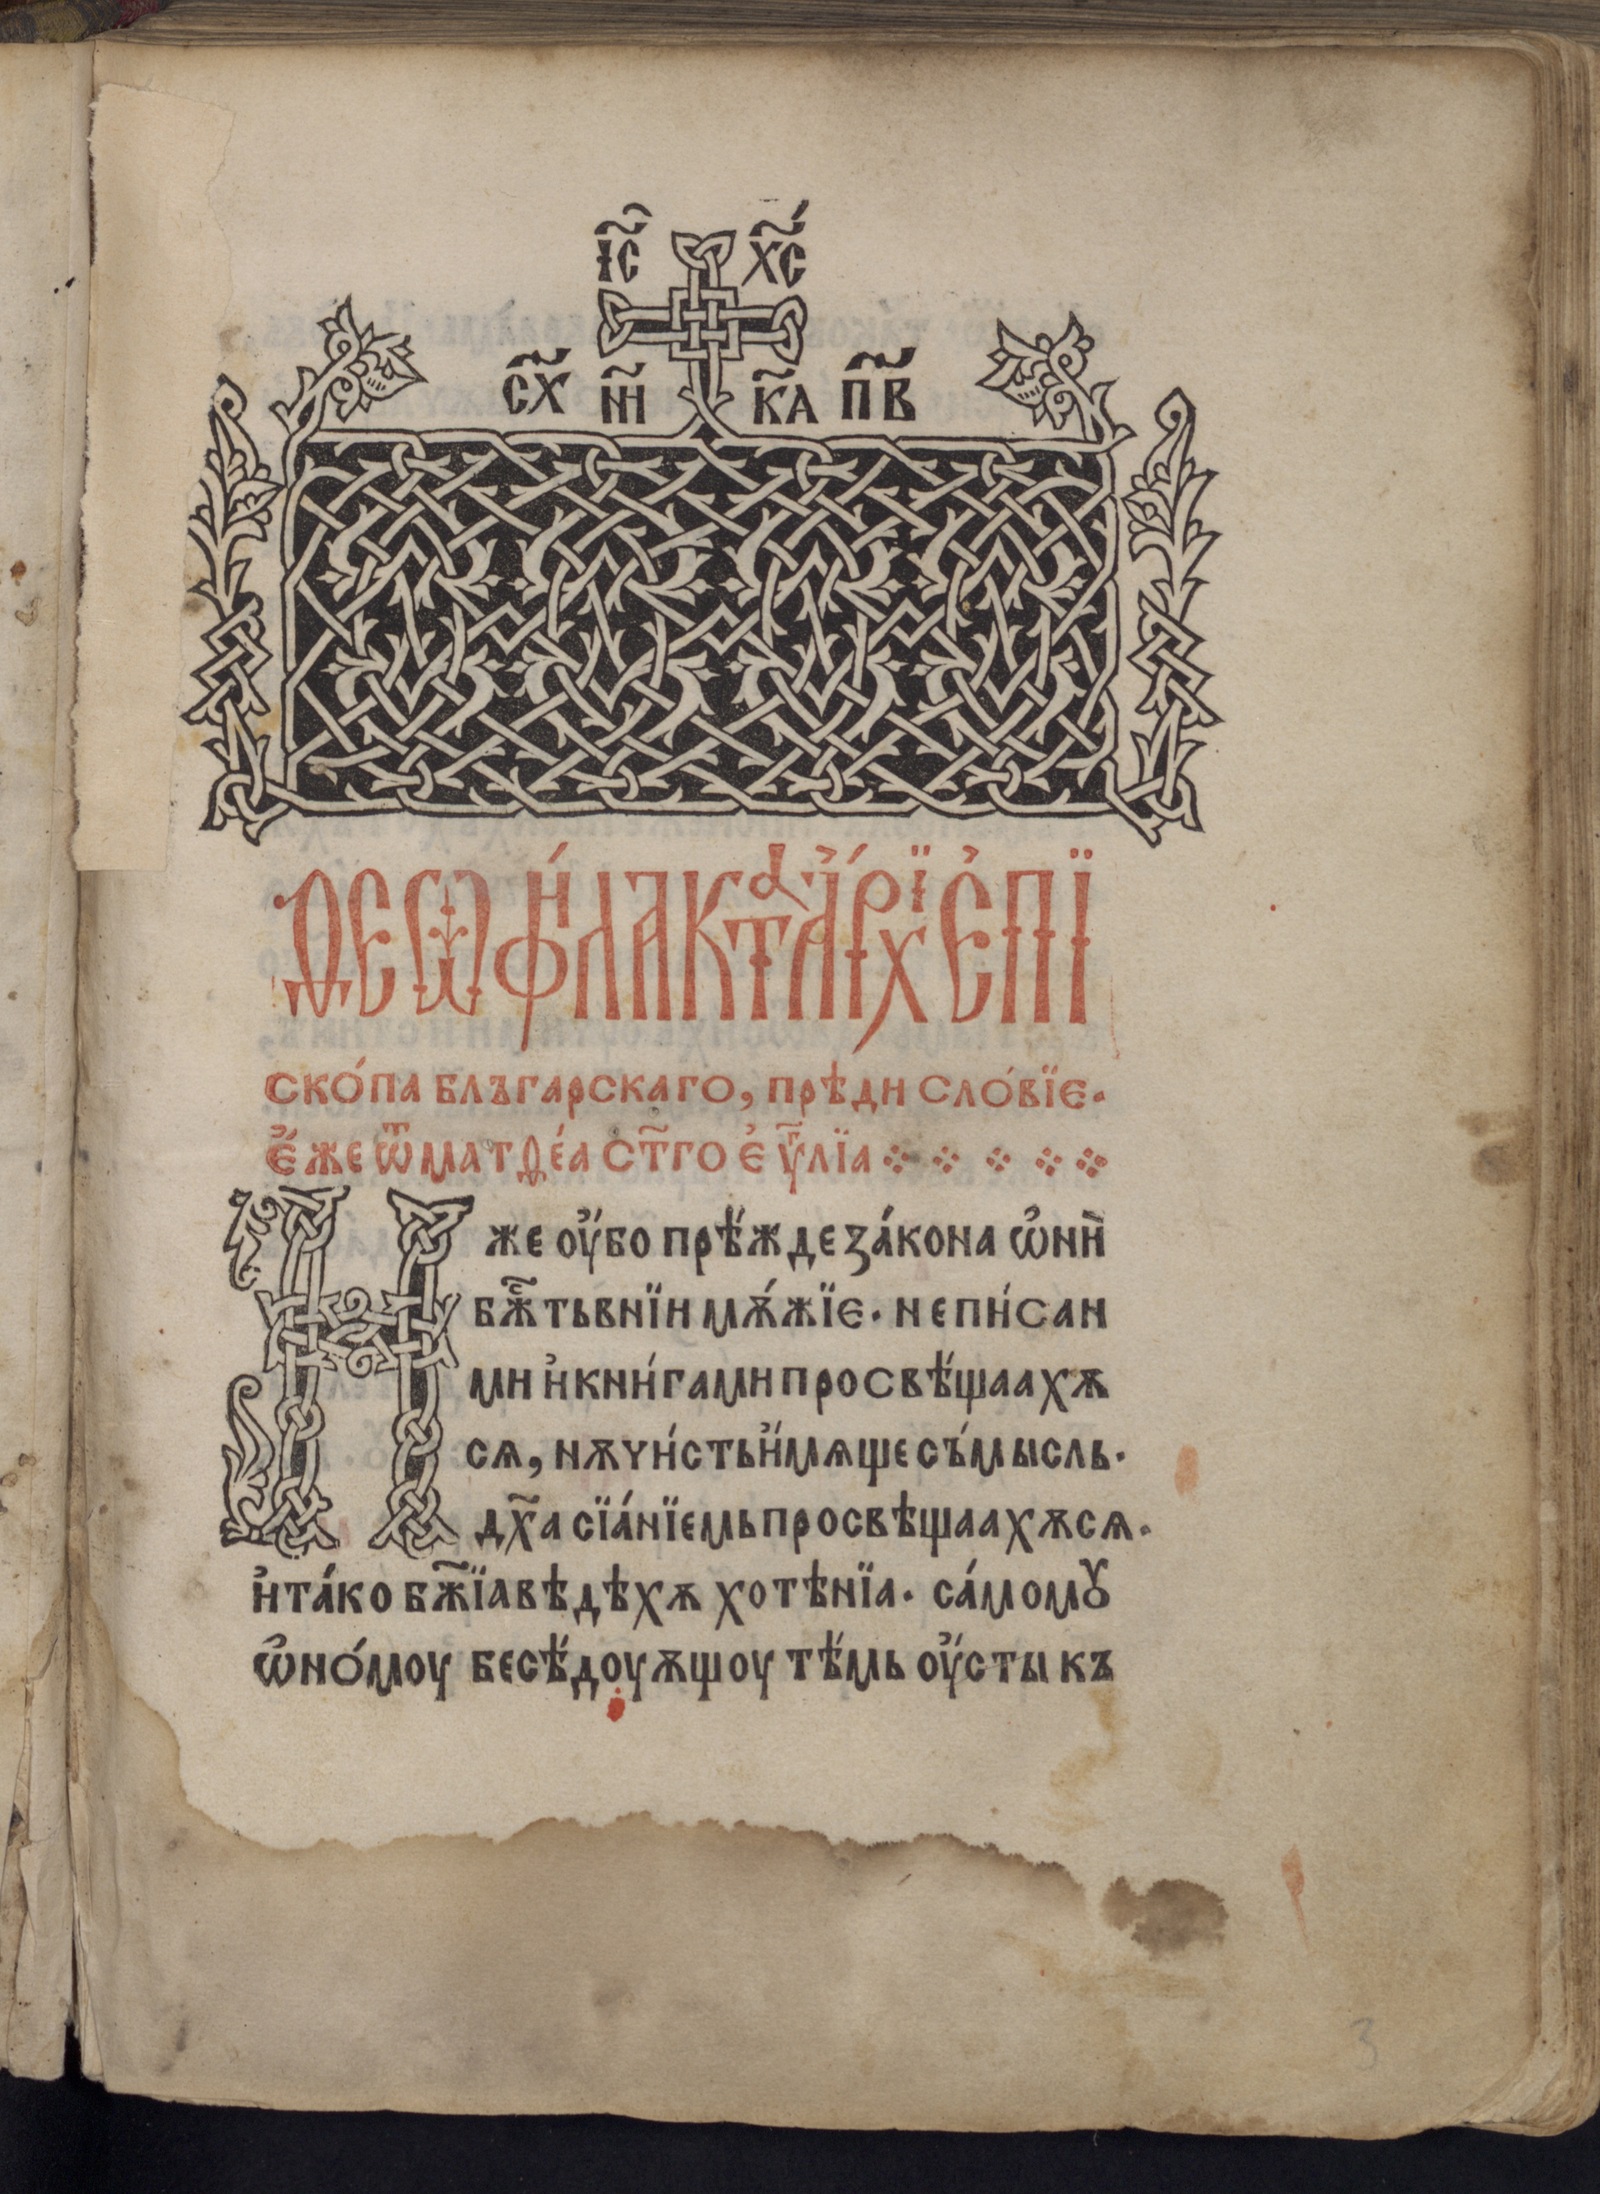 І҃С Х҃С
СХ҃ Н҃І К҃А ПВ҃
Ѳеѡфи́лакта а҆́рхїепї
ско́па блъгарскаго, прѣди сло́вїе.
е҆́же ѿ матѳе́а ст҃го є҆ѵ҃лїа
И же оу҆́бо прѣ́жде за́кона ѡ҆ни̏
бж҃стьвнїи мѫ́жїе. не пи́сан
ми и҆ кни́гами просвѣ́щаахѫ
сѧ, нѫ чи́сть и҆́мѧще съ́мысль.
дх҃а сїа́нїемь просвѣщаахѫсѧ.
и҆ та́ко бж҃їа вѣдѣхѫ хотѣнїа. са́момꙋ
ѡ҆но́моу бесѣ́доуѫщоу тѣ́мь оу҆́сты къ
3